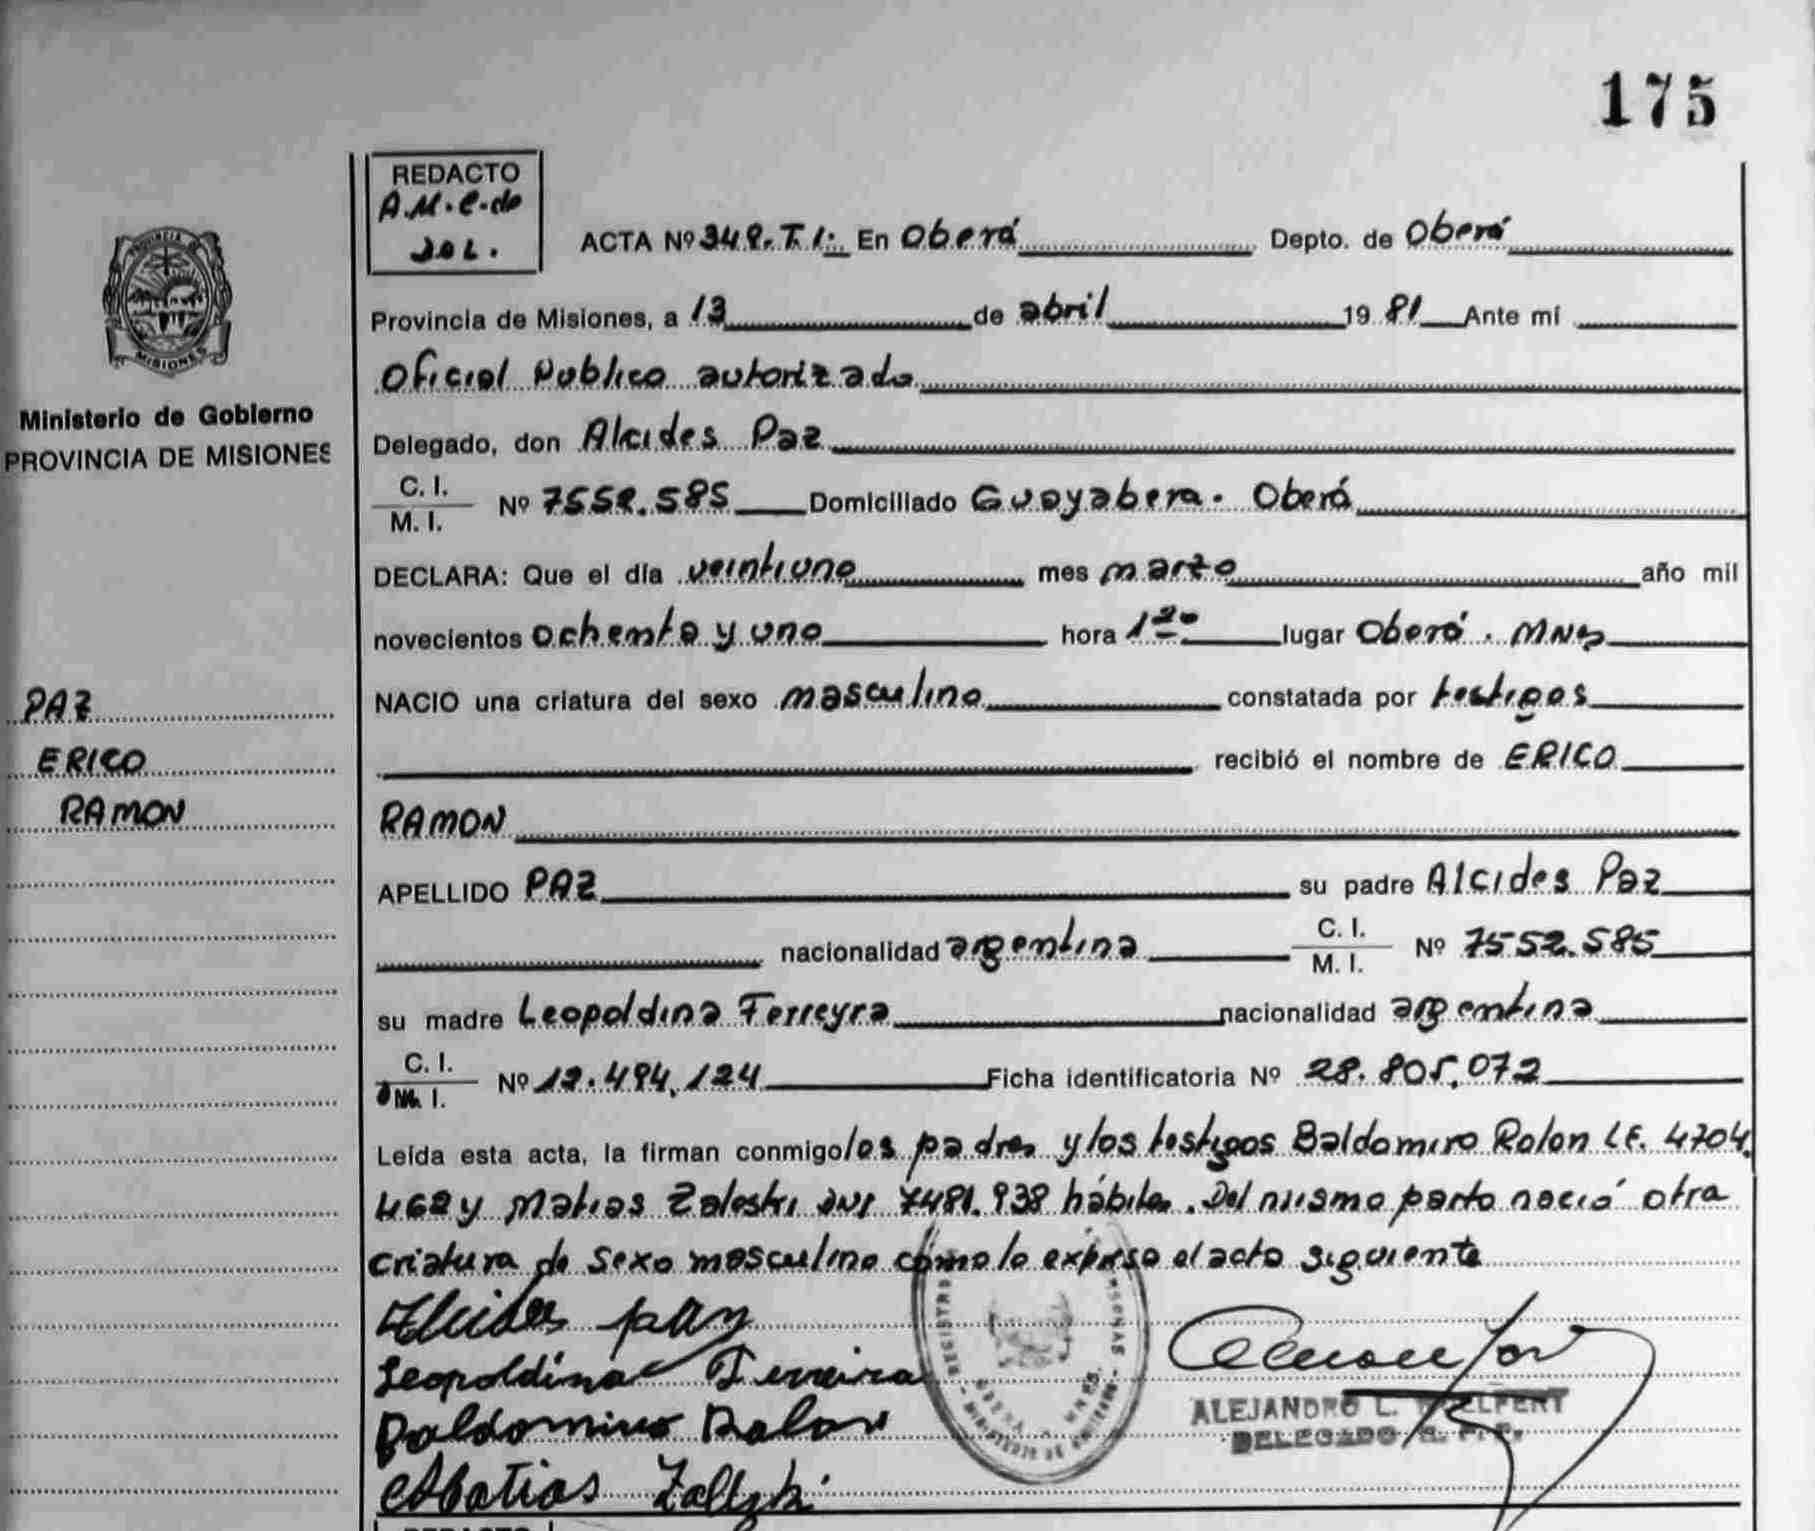 175
REDACTO
A.M.C.de
ACTA Nº 349. T. I: En Oberá Depto. de Oberá
Provincia de Misiones, a 13 de abril 19 81 Ante mí
Oficial Publico autorizado
Delegado, don Alcides Paz
C. I.
M. I. Nº 7552.585 Domiciliado Guayabera. Oberá
DECLARA: Que el día veintiuno mes marzo año mil
novecientos ochenta y uno hora 1 20 lugar Oberá. MNES
NACIO una criatura del sexo masculino constatada por testigos
recibió el nombre de ERICO
RAMON
APELLIDO PAZ su padre Alcides Paz
nacionalidad argentina C. I.
M. I. Nº 7552.585
su madre Leopoldina Ferreyra nacionalidad argentina
C. I.
M. I. Nº 12.494.124 Ficha identificatoria Nº 28.805.072
Leída esta acta, la firman conmigo los padres y los testigos Baldomiro Rolon LE. 4704.
462 y Matias Zaleski DNI 7481.938 hábiles. Del mismo parto nació otra
criatura de sexo masculino cómo lo expresa el acta siguiente
Alcides paz
Leopoldina Ferreira
Baldomiro Rolon
Matias
ALEJANDRO L.
DELEGADO
PROVINCIA DE
MISIONES
Ministerio de Gobierno
PROVINCIA DE MISIONES
PAZ
ERICO
RAMON
REDACTO